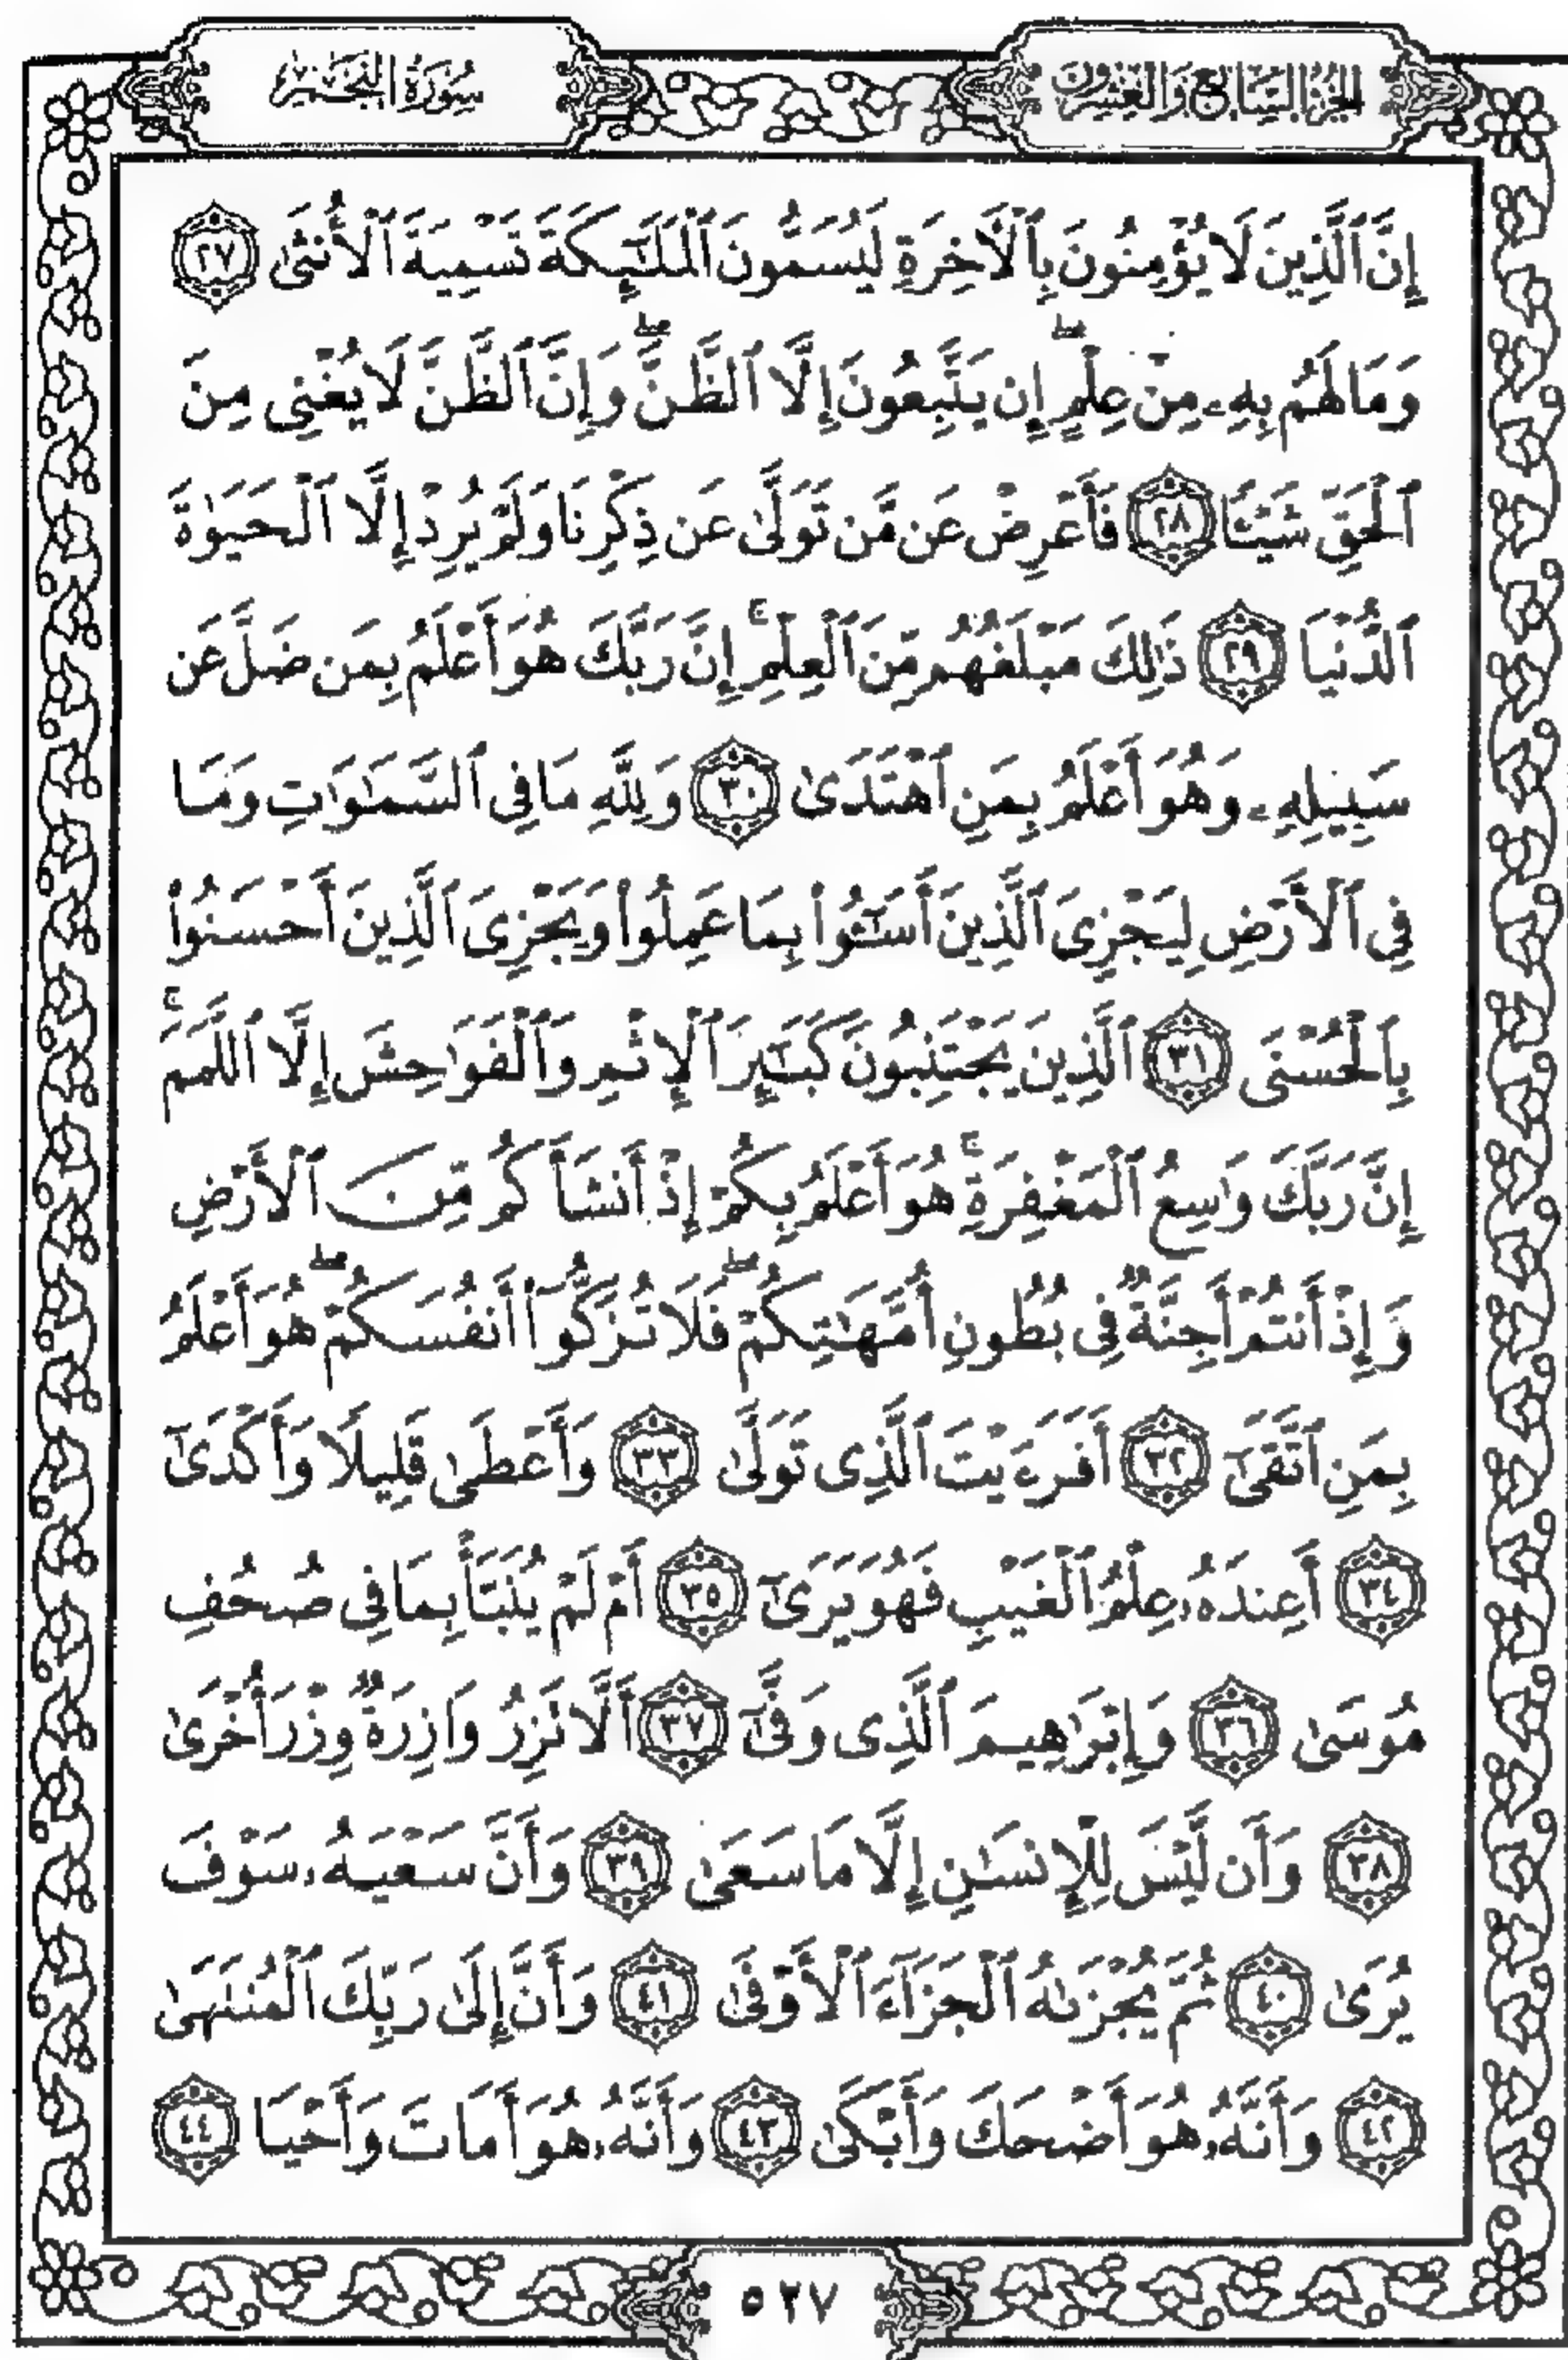 الجزء السابع والعشرون
سورة النجم
إِنَّ ٱلَّذِينَ لَا يُؤْمِنُونَ بِٱلْأَخِرَةِ لَيُسَمُّونَ ٱلْمَلَٰٓئِكَةَ تَسْمِيَةَ ٱلْأُنثَىٰ ٢٧
وَمَا لَهُم بِهِۦ مِنْ عِلْمٍ ۖ إِن يَتَّبِعُونَ إِلَّا ٱلظَّنَّ ۖ وَإِنَّ ٱلظَّنَّ لَا يُغْنِى مِنَ
ٱلْحَقِّ شَيْـًٔا ٢٨ فَأَعْرِضْ عَن مَّن تَوَلَّىٰ عَن ذِكْرِنَا وَلَمْ يُرِدْ إِلَّا ٱلْحَيَوٰةَ
ٱلدُّنْيَا ٢٩ ذَٰلِكَ مَبْلَغُهُم مِّنَ ٱلْعِلْمِ ۚ إِنَّ رَبَّكَ هُوَ أَعْلَمُ بِمَن ضَلَّ عَن
سَبِيلِهِۦ وَهُوَ أَعْلَمُ بِمَنِ ٱهْتَدَىٰ ٣٠ وَلِلَّهِ مَا فِى ٱلسَّمَٰوَٰتِ وَمَا
فِى ٱلْأَرْضِ لِيَجْزِىَ ٱلَّذِينَ أَسَٰٓـُٔوا۟ بِمَا عَمِلُوا۟ وَيَجْزِىَ ٱلَّذِينَ أَحْسَنُوا۟
بِٱلْحُسْنَى ٣١ ٱلَّذِينَ يَجْتَنِبُونَ كَبَٰٓئِرَ ٱلْإِثْمِ وَٱلْفَوَٰحِشَ إِلَّا ٱللَّمَمَ ۚ
إِنَّ رَبَّكَ وَٰسِعُ ٱلْمَغْفِرَةِ ۚ هُوَ أَعْلَمُ بِكُمْ إِذْ أَنشَأَكُم مِّنَ ٱلْأَرْضِ
وَإِذْ أَنتُمْ أَجِنَّةٌ فِى بُطُونِ أُمَّهَٰتِكُمْ ۖ فَلَا تُزَكُّوٓا۟ أَنفُسَكُمْ ۖ هُوَ أَعْلَمُ
بِمَنِ ٱتَّقَىٰٓ ٣٢ أَفَرَءَيْتَ ٱلَّذِى تَوَلَّىٰ ٣٣ وَأَعْطَىٰ قَلِيلًا وَأَكْدَىٰٓ
٣٤ أَعِندَهُۥ عِلْمُ ٱلْغَيْبِ فَهُوَ يَرَىٰٓ ٣٥ أَمْ لَمْ يُنَبَّأْ بِمَا فِى صُحُفِ
مُوسَىٰ ٣٦ وَإِبْرَٰهِيمَ ٱلَّذِى وَفَّىٰٓ ٣٧ أَلَّا تَزِرُ وَازِرَةٌ وِزْرَ أُخْرَىٰ
٣٨ وَأَن لَّيْسَ لِلْإِنسَٰنِ إِلَّا مَا سَعَىٰ ٣٩ وَأَنَّ سَعْيَهُۥ سَوْفَ
يُرَىٰ ٤٠ ثُمَّ يُجْزَىٰهُ ٱلْجَزَآءَ ٱلْأَوْفَىٰ ٤١ وَأَنَّ إِلَىٰ رَبِّكَ ٱلْمُنتَهَىٰ
٤٢ وَأَنَّهُۥ هُوَ أَضْحَكَ وَأَبْكَىٰ ٤٣ وَأَنَّهُۥ هُوَ أَمَاتَ وَأَحْيَا ٤٤
٥٢٧